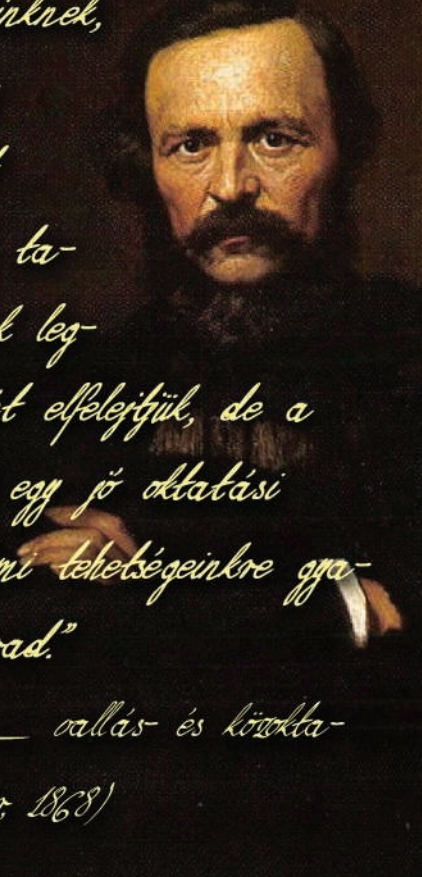 inknek,
ta-
k leg-
t elfelejtjük, de a
egy jó oktatási
mi tehetségeinkre gya-
rad."
vallás- és közokta-
r, 1868)